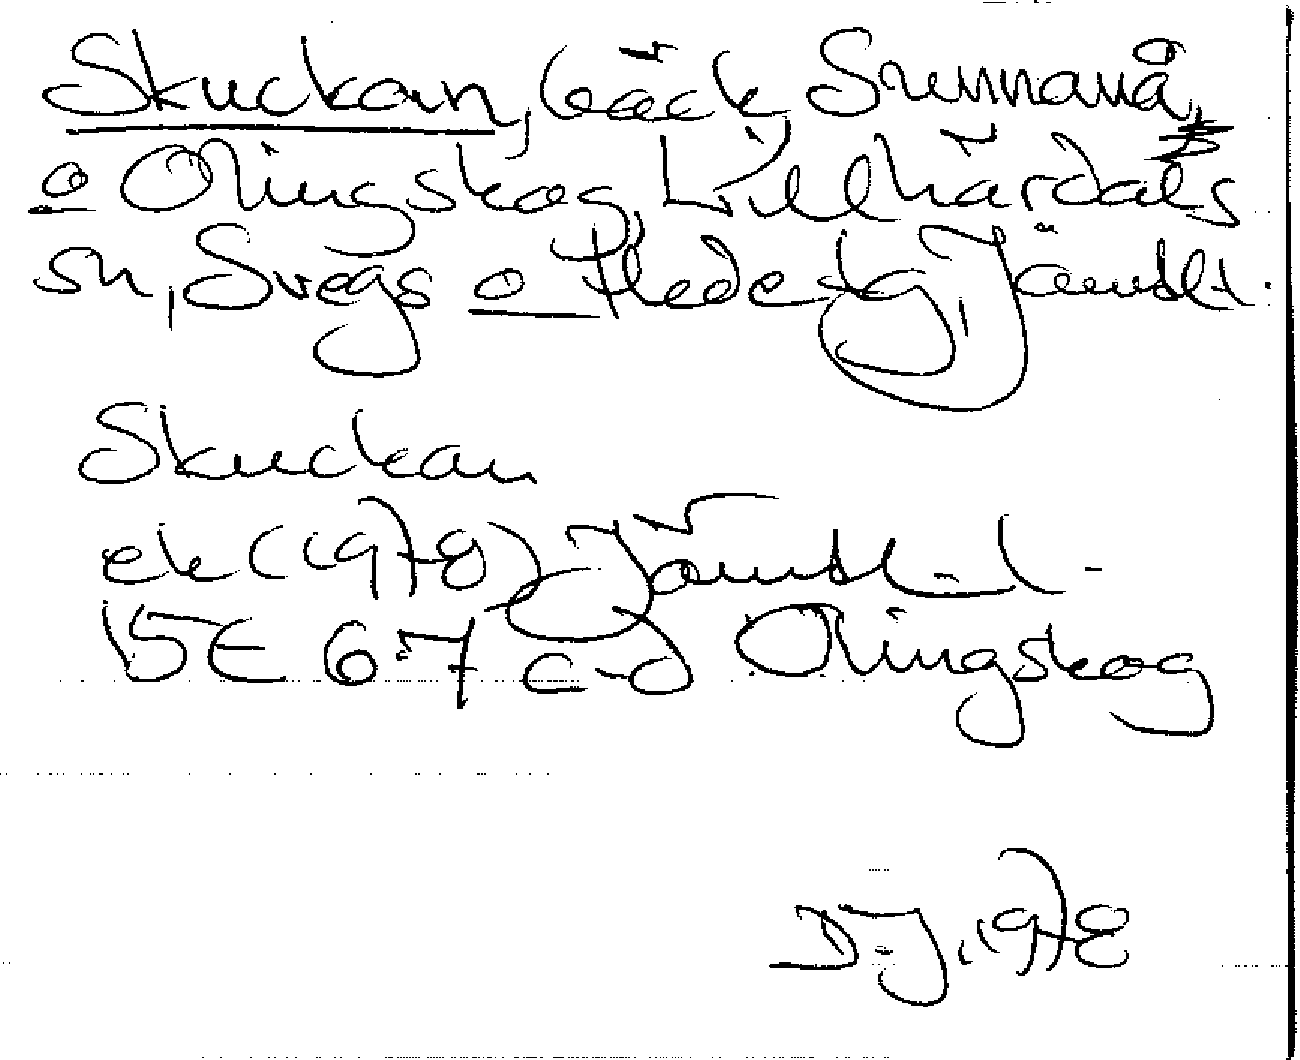 Skuckan, bäck Sunnanå,
o Öjingskog, Lillhärdals
sn, Svegs o Hede tg, Jämtl.
Skuckan
ek (1978) Jämtl. l.
15E 6-7 c-d Öjingskog
D.J. 1978